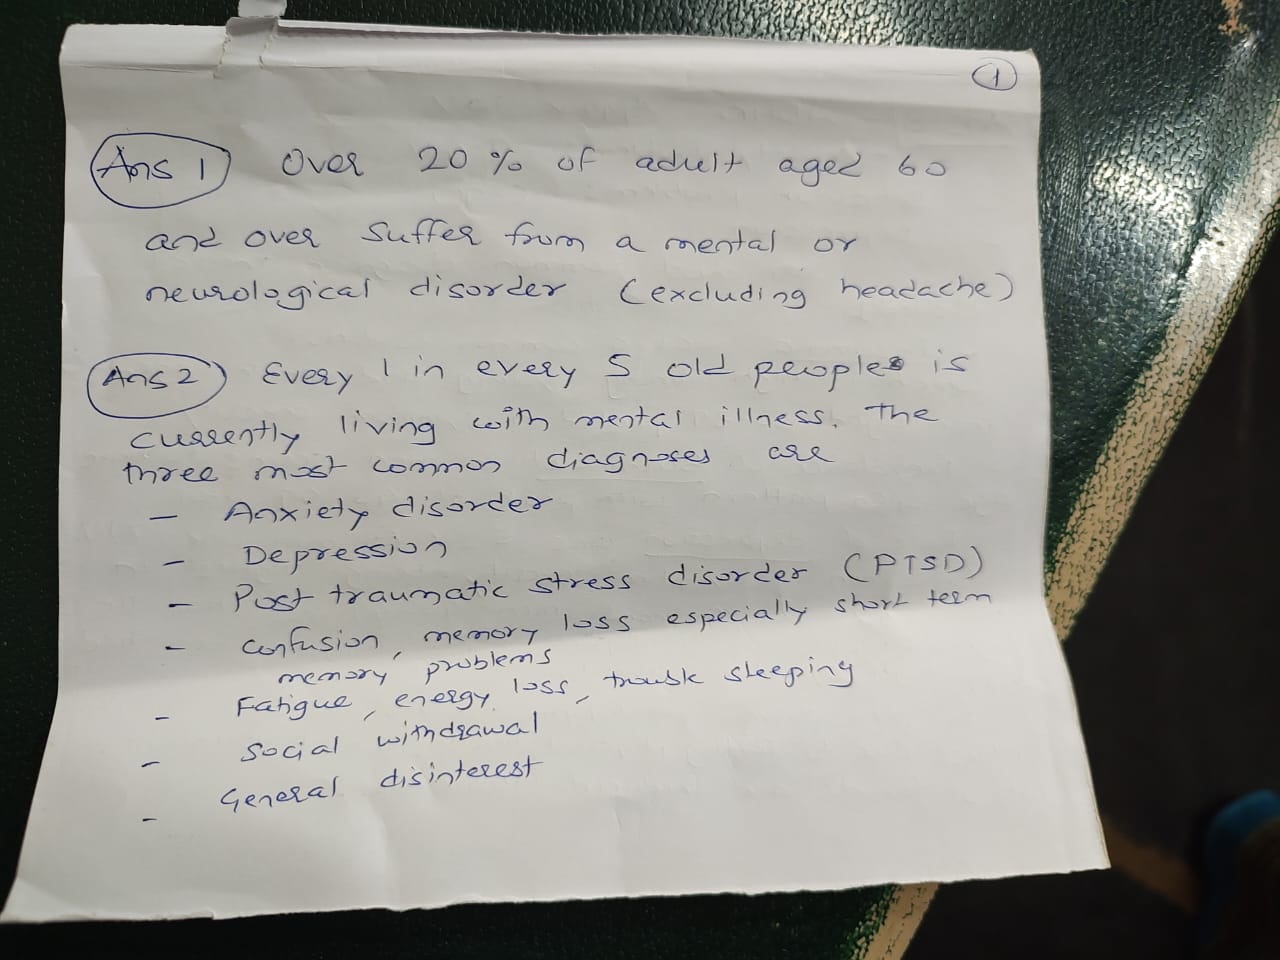 1
Ans 1 Over 20% of adult aged 60
and over suffer from a mental or
neurological disorder (excluding headache)
Ans 2 Every 1 in every 5 old peoples is
currently living with mental illness. The
three most common diagnoses are
- Anxiety disorder
- Depression
- Post traumatic stress disorder (PTSD)
- confusion, memory loss especially short term
memory problems
- Fatigue, energy loss, trouble sleeping
- Social withdrawal
- General disinterest